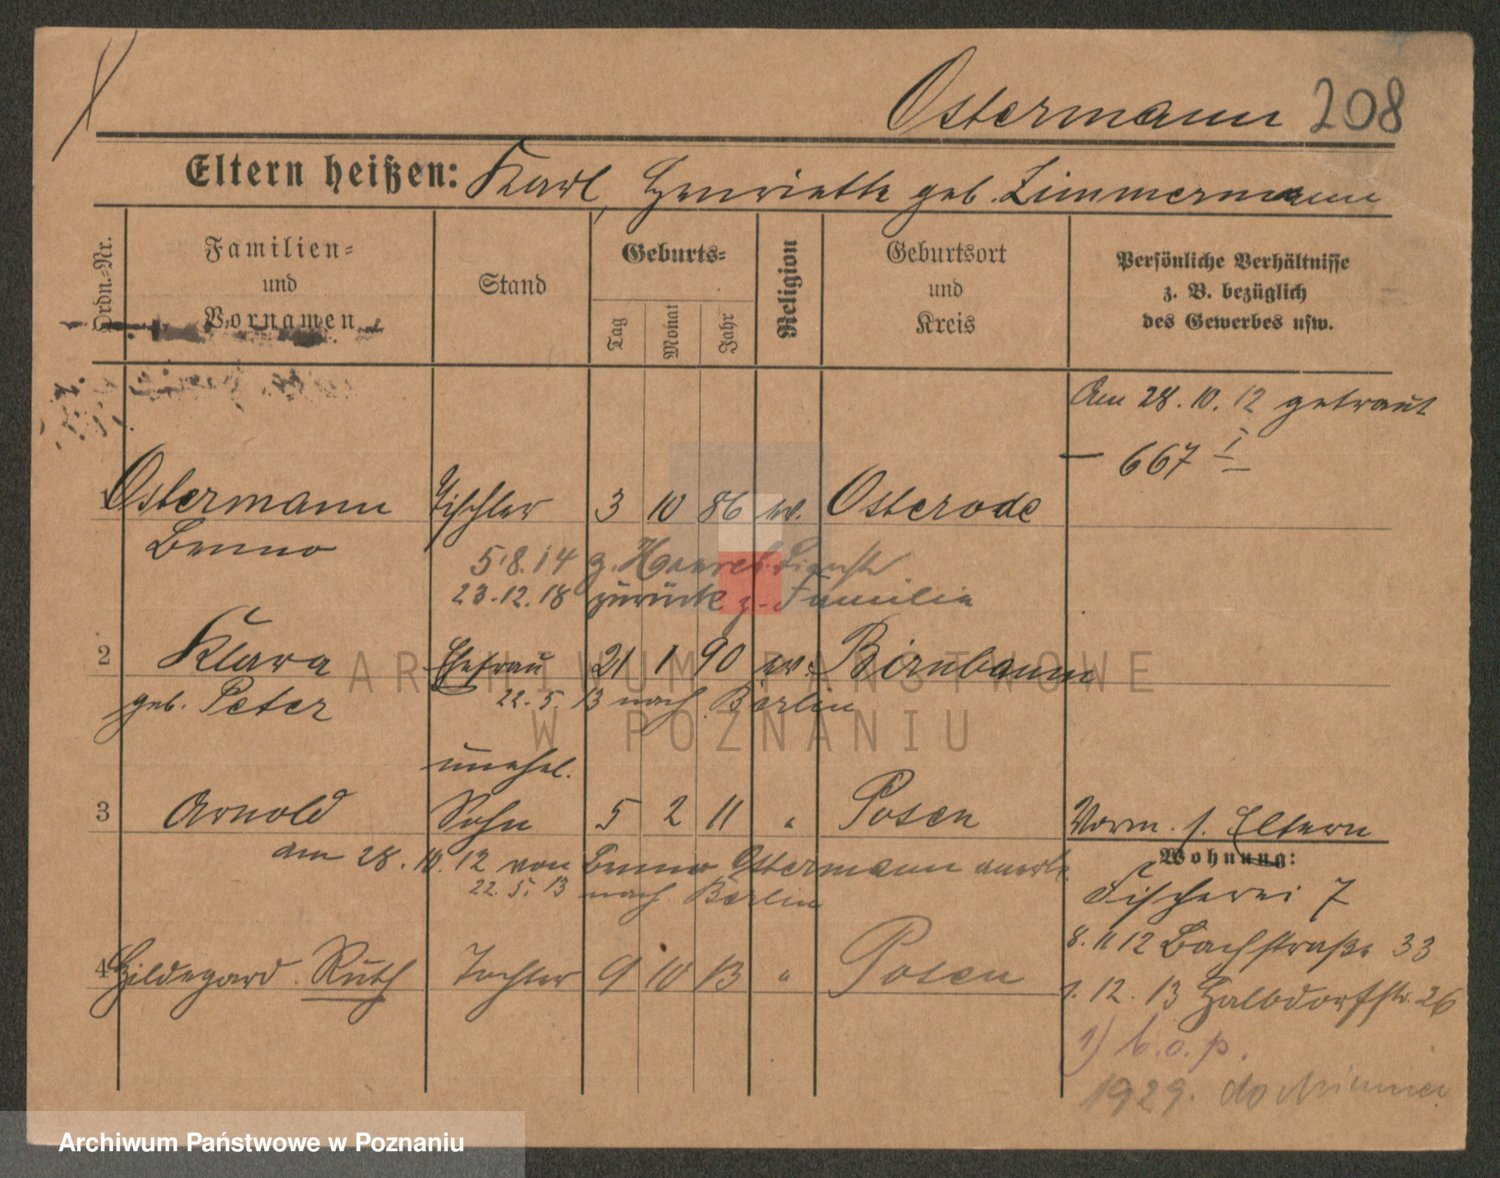 Ostermann 208
Eltern heißen: Karl, Henriette geb. Zimmermann
Ordn.=Nr.
Familien=
und
Vornamen
Stand
Geburts=
Tag
Monat
Jahr
Religion
Geburtsort
und
Kreis
Persönliche Verhältnisse
z. B. bezüglich
des Gewerbes usw.
Am 28.10.12 getraut
— 667 I
1 Ostermann Tischler 3 10 86 ev. Osterode
Benno
5.8.14 z. Heeresdienst
23.12.18 zurück z. Familie
2 Klara Ehefrau 21 1 90 ev. Birnbaum
geb. Peter 22.5.13 nach Berlin
unehel.
3 Arnold Sohn 5 2 11 " Posen
Vorm. s. Eltern
am 28.10.12 von Benno Ostermann anerk.
22.5.13 nach Berlin
Wohnung:
Fischerei 7
8.11.12 Bachstraße 33
4 Hildegard Ruth Tochter 9 10 13 " Posen
1.12.13 Halbdorfstr. 26
1) b.o.p.
1929. do
ARCHIWUM PAŃSTWOWE
W POZNANIU
Archiwum Państwowe w Poznaniu